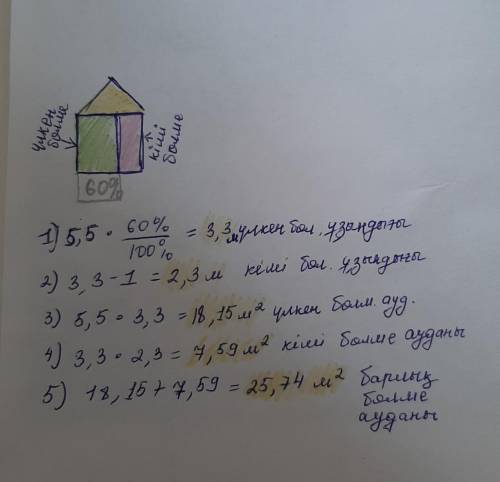 үлкен
бөлме
кіші
бөлме
60%
1) 5,5 · 60%/100% = 3,3 м үлкен бөл. ұзындығы
2) 3,3 - 1 = 2,3 м кіші бөл. ұзындығы
3) 5,5 · 3,3 = 18,15 м² үлкен бөлм. ауд.
4) 3,3 · 2,3 = 7,59 м² кіші бөлме ауданы
5) 18,15 + 7,59 = 25,74 м² барлық
бөлме
ауданы